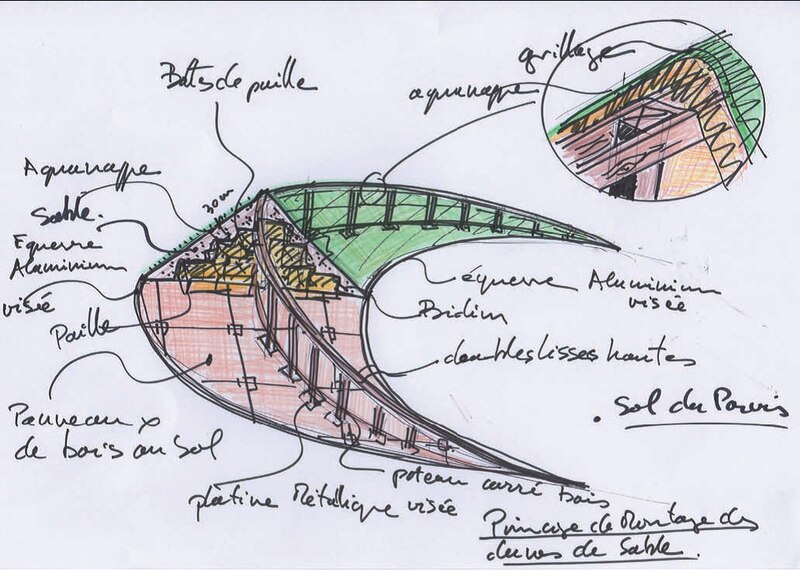 Bottes de paille
grillage
aquanappe
Aquanappe
Sable.
30 cm
Equerre
Aluminium
visée
Paille
équerre Aluminium
visée
Bidim
doubles lisses hautes
. Sol du Parvis
Panneaux
de bois au Sol
platine Métallique visée
poteau carré bois
Principe de Montage des
dunes de Sable.